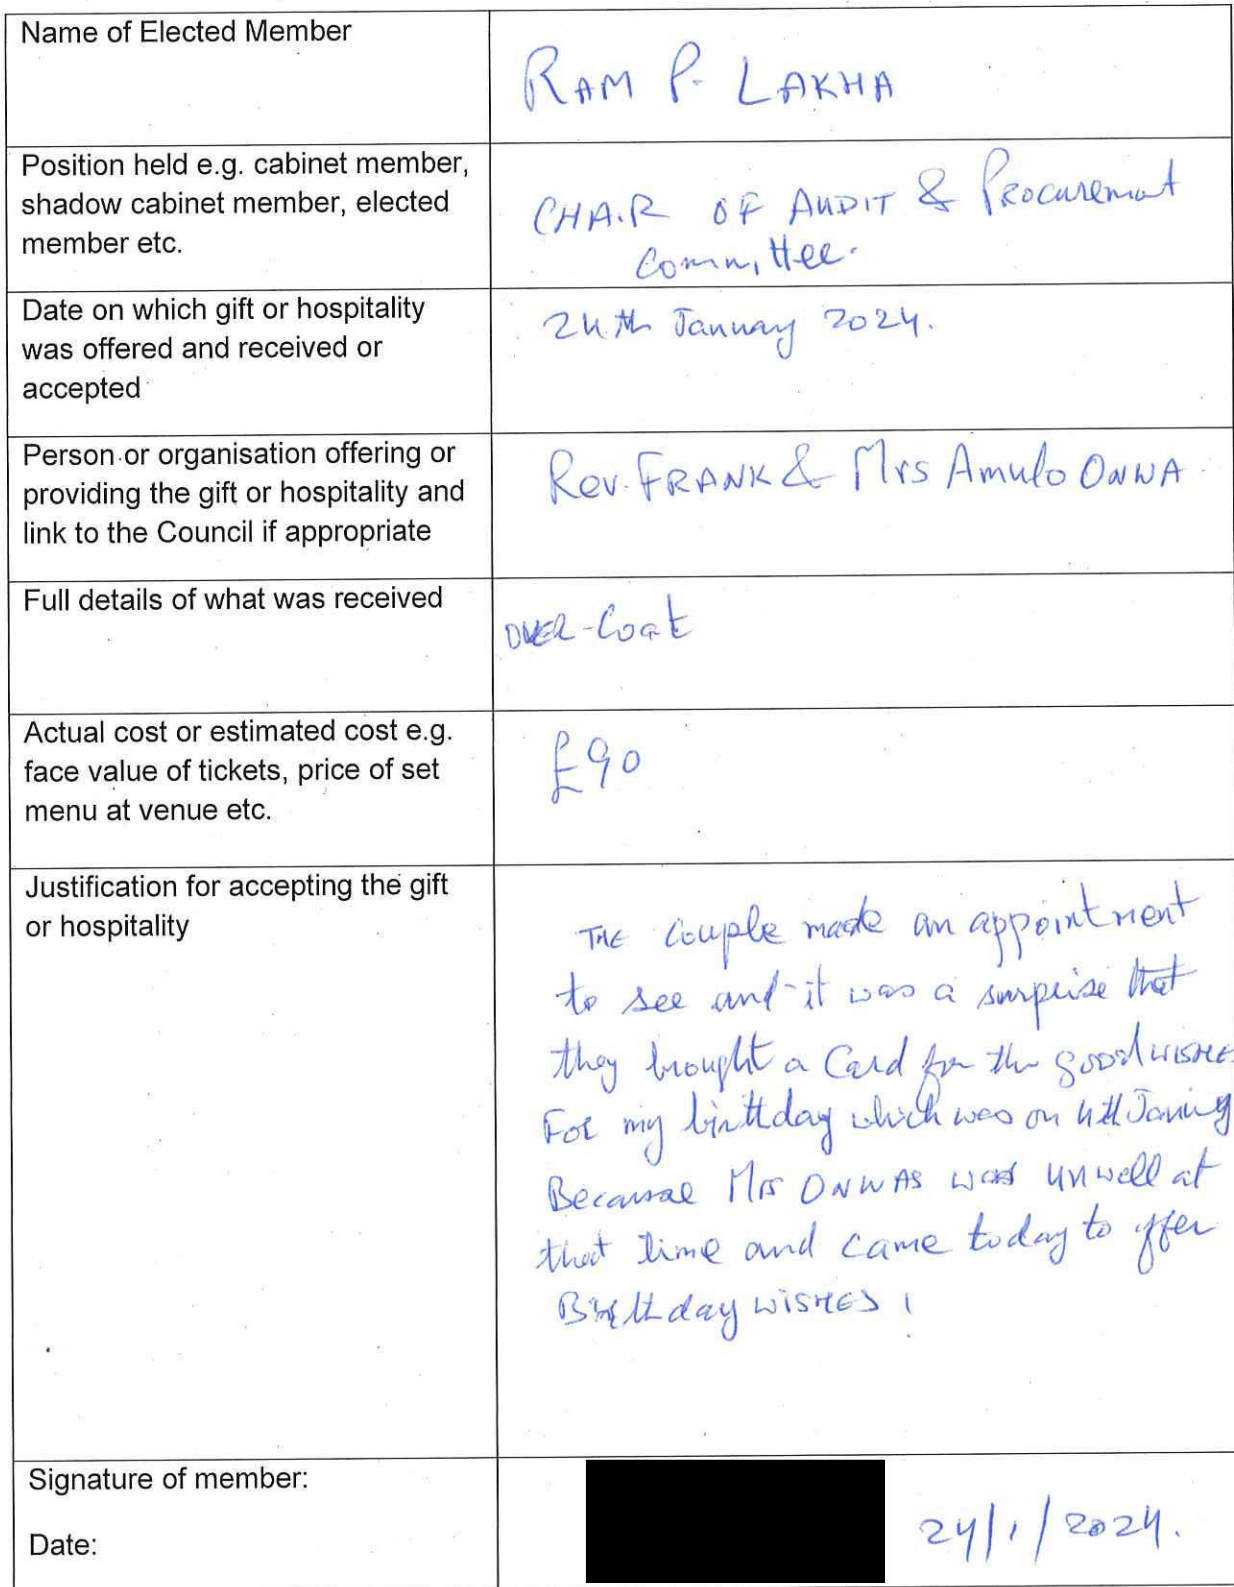 Name of Elected Member
RAM P. LAKHA
Position held e.g. cabinet member,
shadow cabinet member, elected
member etc.
CHAIR OF AUDIT & Procurement
Committee.
Date on which gift or hospitality
was offered and received or
accepted
24th January 2024.
Person or organisation offering or
providing the gift or hospitality and
link to the Council if appropriate
Rev. FRANK & Mrs Amulo ONWA
Full details of what was received
OVER-Coat
Actual cost or estimated cost e.g.
face value of tickets, price of set
menu at venue etc.
£90
Justification for accepting the gift
or hospitality
THE Couple made an appointment
to see and it was a surprise that
they brought a Card for the good WISHES
FOR my birthday which was on 4th January
Because Mrs ONWAS was unwell at
that time and came today to offer
Birthday WISHES !
Signature of member:
Date:
24/1/2024.